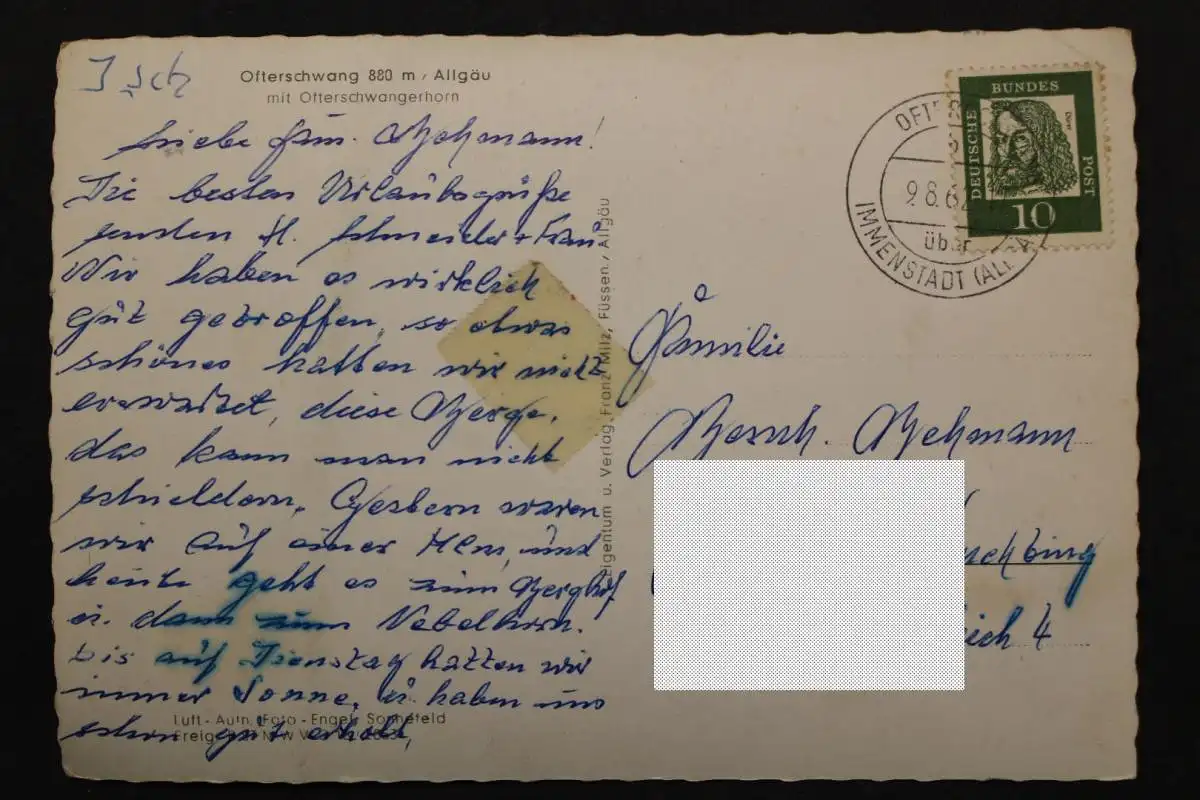 Ofterschwang 880 m, Allgäu
mit Ofterschwangerhorn
Liebe Fam. Behmann!
Die besten Urlaubsgrüße
senden H. Schneider + Frau.
Wir haben es wirklich
gut getroffen, so etwas
schönes hatten wir nicht
erwartet, diese Berge,
das kann man nicht
schieldern. Gestern waren
wir auf einer Alm, und
heute geht es zum Berghof
u. dann zum Nebelhorn.
bis auf Dienstag hatten wir
immer Sonne, u. haben uns
schon gut erholt,
Luft-Aufn. (Foto-Engel, Sonnefeld
Eigentum u. Verlag, Franz Milz, Füssen/Allgäu
DEUTSCHE BUNDES POST
Dürer
10
9.8.62
über
IMMENSTADT (ALL
Familie
Bernh. Behmann
4